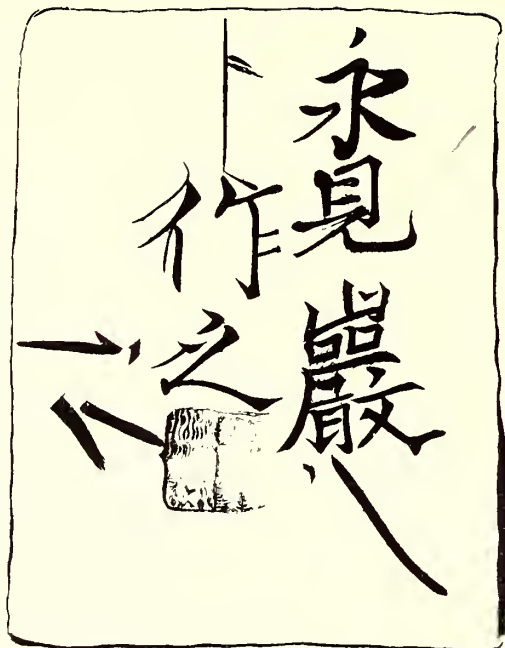 永見巖
卜作之